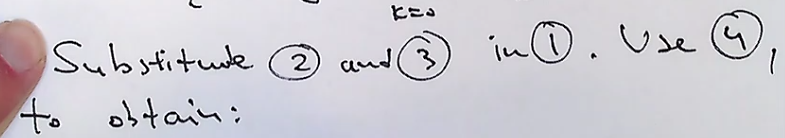 k=0
Substitute ② and ③ in ①. Use ④,
to obtain: